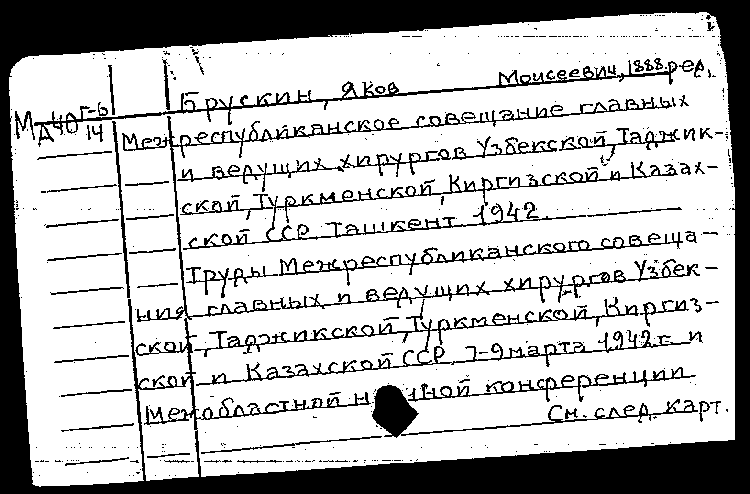 Брускин, Яков Моисеевич, 1888. ред.
М
14
Межреспубликанское совещание главных
и ведущих хирургов Узбекской, Таджик-
ской, Туркменской, Киргизской и Казах-
ской ССР. Ташкент. 1942.
Труды Межреспубликанского совеща-
ния главных и ведущих хирургов Узбек-
ской, Таджикской, Туркменской, Киргиз-
ской и Казахской ССР. 7-9 марта 1942 г. и
Межобластной конференции
См. след. карт.